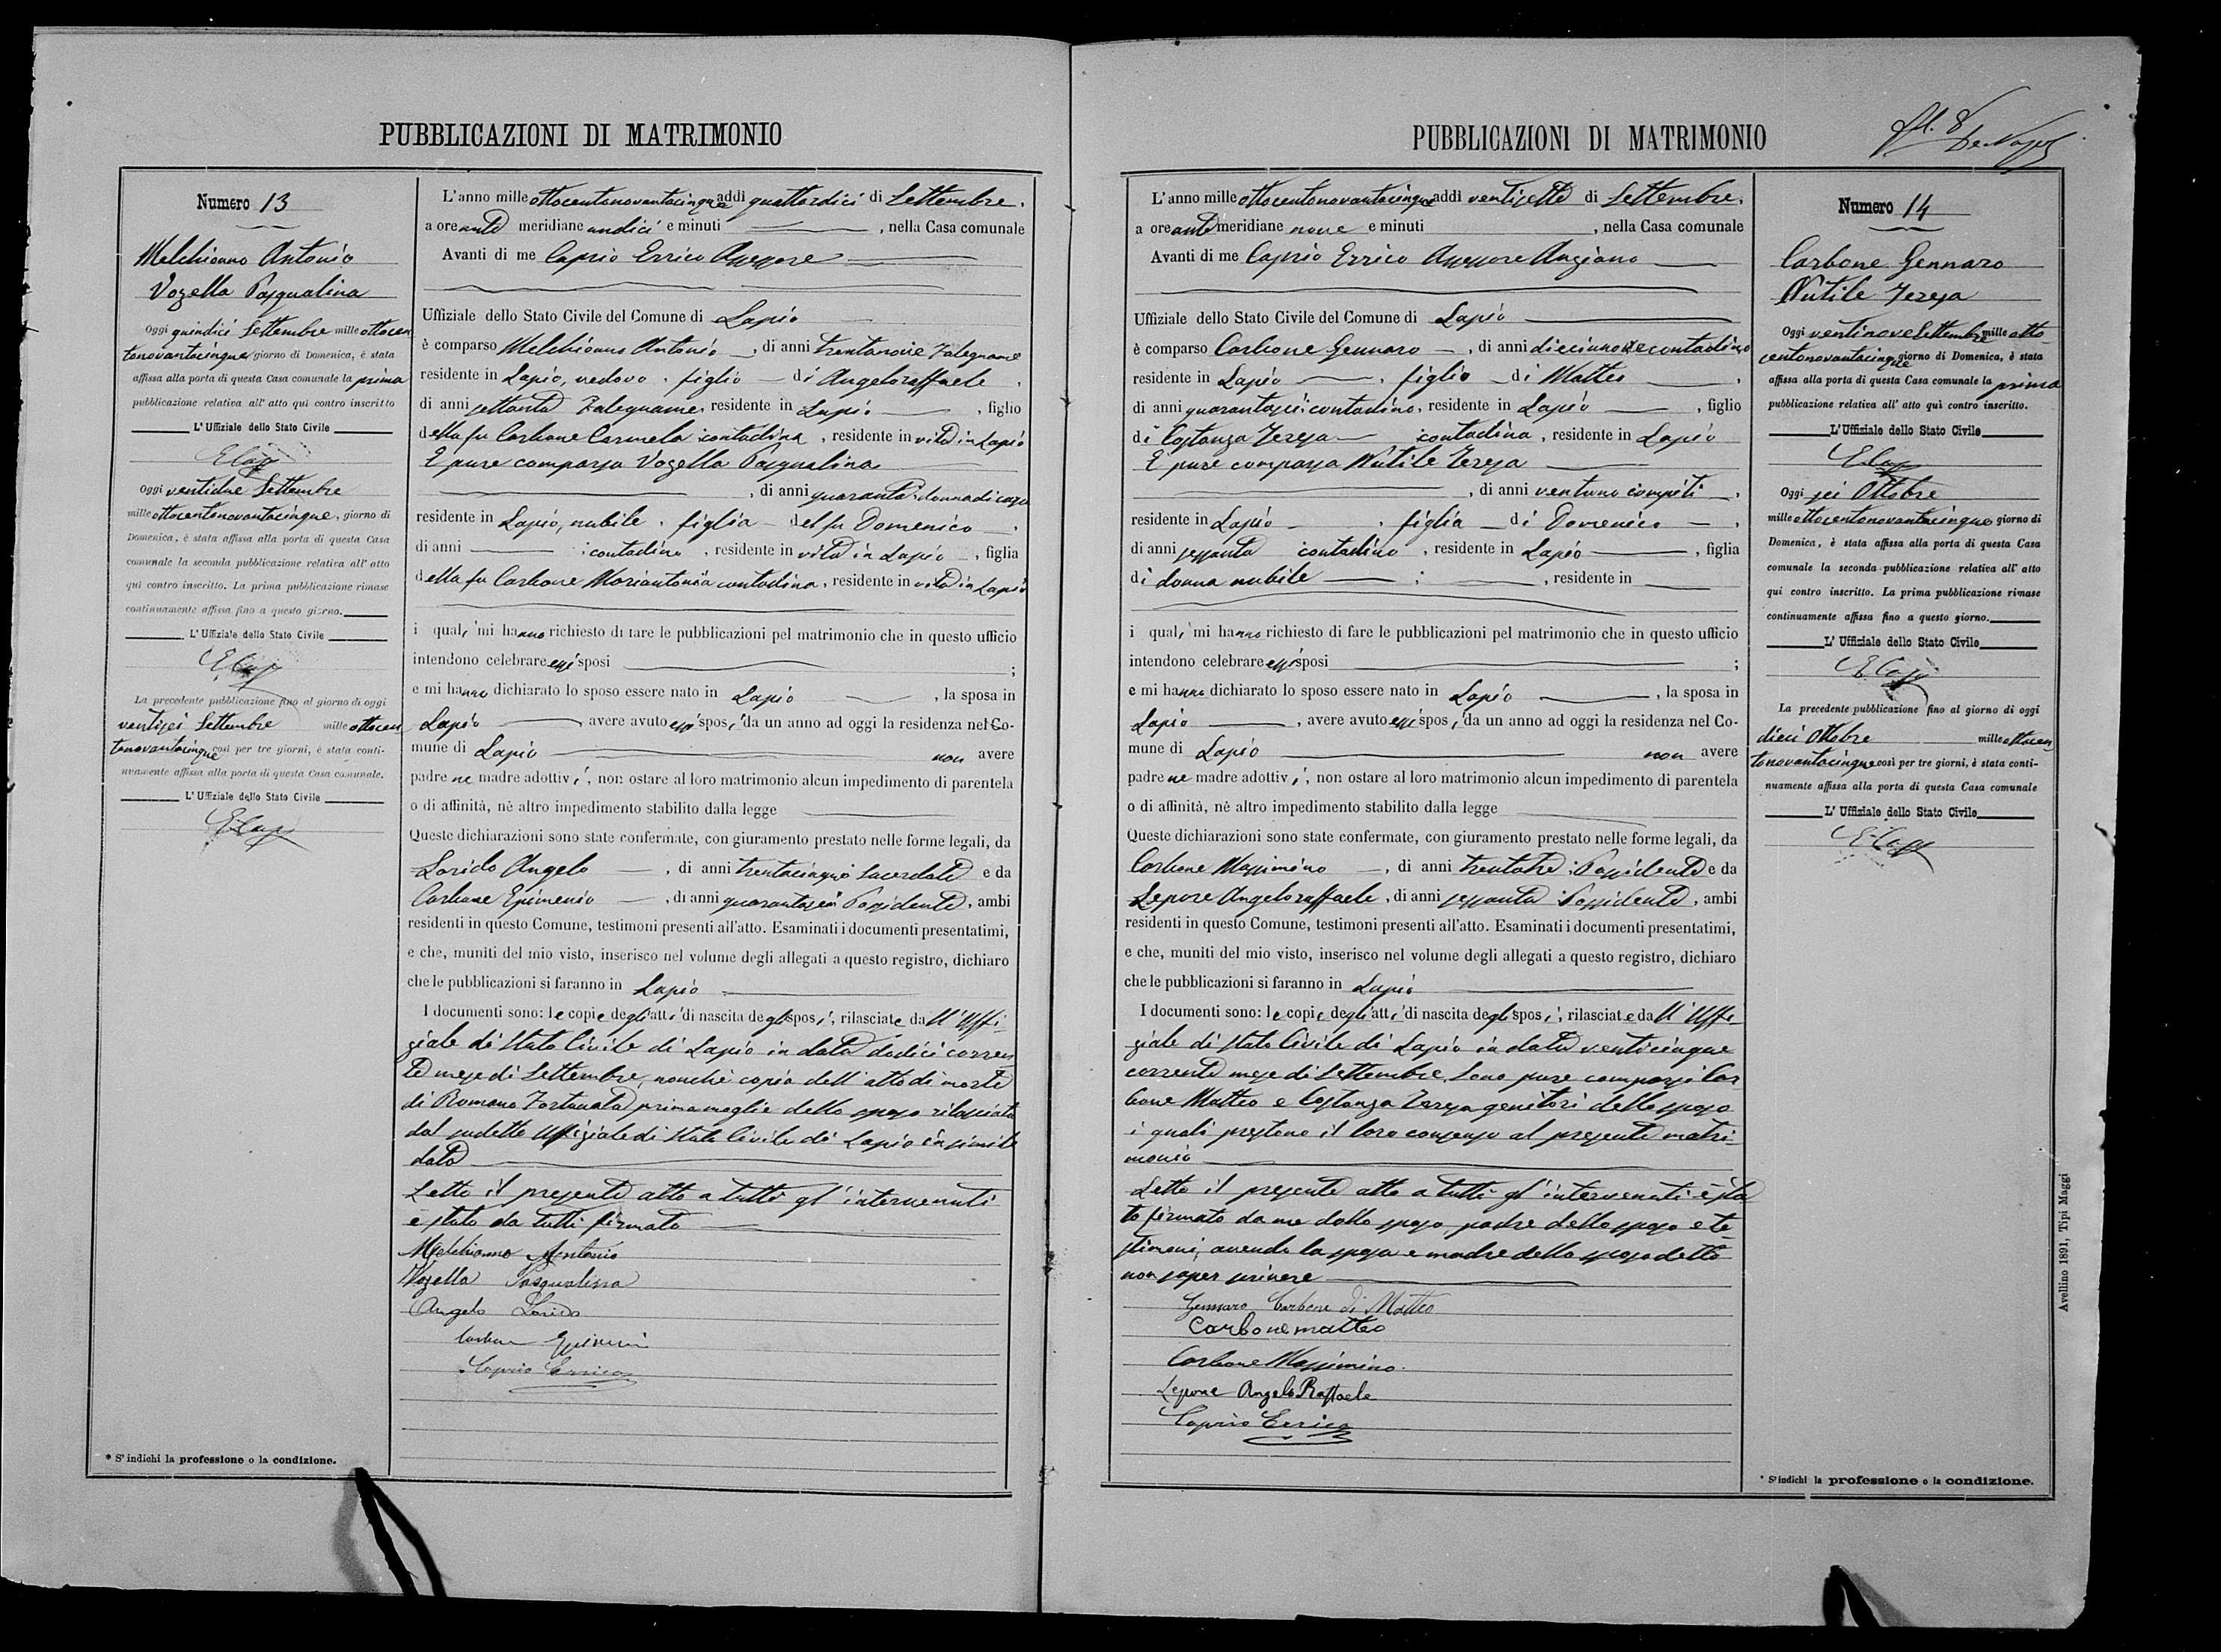 PUBBLICAZIONI DI MATRIMONIO
Numero 13
Melchionno Antonio
Vozella Pasqualina
Oggi quindici Settembre mille ottocen
tonovantacinque giorno di Domenica, è stata
affissa alla porta di questa Casa comunale la prima
pubblicazione relativa all' atto qui contro inscritto
L' Uffiziale dello Stato Civile
Oggi ventidue Settembre
mille ottocentonovantacinque, giorno di
Domenica, è stata affissa alla porta di questa Casa
comunale la seconda pubblicazione relativa all' atto
qui contro inscritto. La prima pubblicazione rimase
continuamente affissa fino a questo giorno.
L' Uffiziale dello Stato Civile
La precedente pubblicazione fino al giorno di oggi
ventisei Settembre mille ottocen
tonovantacinque così per tre giorni, è stata conti-
nuamente affissa alla porta di questa Casa comunale.
L' Uffiziale dello Stato Civile
* S' indichi la professione o la condizione.
L'anno mille ottocentonovantacinque addì quattordici di Settembre,
a ore ante meridiane undici e minuti , nella Casa comunale
Avanti di me Caprio Errico Assessore
Uffiziale dello Stato Civile del Comune di Lapio
è comparso Melchionno Antonio , di anni trentanove Falegname
residente in Lapio, vedovo . figlio di Angeloraffaele ,
di anni settanta Falegname, residente in Lapio , figlio
della fu Carbone Carmela contadina , residente in vita in Lapio
È pure comparsa Vozella Pasqualina
, di anni quaranta donna di casa
residente in Lapio, nubile . figlia del fu Domenico .
di anni contadino , residente in vita in Lapio , figlia
della fu Carbone Mariantonia contadina, residente in vita in Lapio
i quali mi hanno richiesto di fare le pubblicazioni pel matrimonio che in questo ufficio
intendono celebrare essi sposi ;
e mi hanno dichiarato lo sposo essere nato in Lapio , la sposa in
Lapio , avere avuto essi sposi da un anno ad oggi la residenza nel Co-
mune di Lapio non avere
padre ne madre adottivi, non ostare al loro matrimonio alcun impedimento di parentela
o di affinità, nè altro impedimento stabilito dalla legge
Queste dichiarazioni sono state confermate, con giuramento prestato nelle forme legali, da
Lorido Angelo , di anni trentacinque Sacerdote e da
Carbone Epimenio , di anni quarantasei Possidente, ambi
residenti in questo Comune, testimoni presenti all'atto. Esaminati i documenti presentatimi,
e che, muniti del mio visto, inserisco nel volume degli allegati a questo registro, dichiaro
che le pubblicazioni si faranno in Lapio
I documenti sono: le copie degli atti di nascita degli sposi, rilasciate dall' Uffi-
ziale di Stato Civile di Lapio in data dodici corren
te mese di Settembre, nonchè copia dell' atto di morte
di Romano Fortunata prima moglie dello sposo rilasciata
dal sudetto Uffiziale di Stato Civile di Lapio in simile
data
Letto il presente atto a tutti gl' intervenuti
è stato da tutti firmato
Melchionno Antonio
Vozella Pasqualina
Angelo Lorido
Carbone Epimenio
Caprio Errico
PUBBLICAZIONI DI MATRIMONIO
L'anno mille ottocentonovantacinque addì ventisette di Settembre,
a ore ante meridiane nove e minuti , nella Casa comunale
Avanti di me Caprio Errico Assessore Anziano
Uffiziale dello Stato Civile del Comune di Lapio
è comparso Carbone Gennaro , di anni diecinnove contadino
residente in Lapio . figlio di Matteo ,
di anni quarantasei contadino, residente in Lapio , figlio
di Costanza Teresa contadina , residente in Lapio
È pure comparsa Nutile Teresa
, di anni ventuno compiti ,
residente in Lapio . figlia di Domenico ,
di anni sessanta contadino , residente in Lapio , figlia
di donna nubile ; , residente in
i quali mi hanno richiesto di fare le pubblicazioni pel matrimonio che in questo ufficio
intendono celebrare essi sposi ;
e mi hanno dichiarato lo sposo essere nato in Lapio , la sposa in
Lapio , avere avuto essi sposi da un anno ad oggi la residenza nel Co-
mune di Lapio non avere
padre ne madre adottivi, non ostare al loro matrimonio alcun impedimento di parentela
o di affinità, nè altro impedimento stabilito dalla legge
Queste dichiarazioni sono state confermate, con giuramento prestato nelle forme legali, da
Carbone Massimino , di anni trentatre Possidente e da
Lepore Angeloraffaele , di anni sessanta Possidente, ambi
residenti in questo Comune, testimoni presenti all'atto. Esaminati i documenti presentatimi,
e che, muniti del mio visto, inserisco nel volume degli allegati a questo registro, dichiaro
che le pubblicazioni si faranno in Lapio
I documenti sono: le copie degli atti di nascita degli sposi, rilasciate dall' Uffi-
ziale di Stato Civile di Lapio in data venticinque
corrente mese di Settembre. Sono pure comparsi Car
bone Matteo e Costanza Teresa genitori dello sposo
i quali prestono il loro consenso al presente matri-
monio
Letto il presente atto a tutti gl' intervenuti è sta
to firmato da me dallo sposo, padre dello sposo e te-
stimoni, avendo la sposa e madre dello sposo detto
non saper scrivere
Gennaro Carbone di Matteo
Carbone matteo
Carbone Massimino
Lepore Angelo Raffaele
Caprio Errico
Numero 14
Carbone Gennaro
Nutile Teresa
Oggi ventinove Settembre mille otto
centonovantacinque giorno di Domenica, è stata
affissa alla porta di questa Casa comunale la prima
pubblicazione relativa all' atto quì contro inscritto.
L' Uffiziale dello Stato Civile
Oggi sei Ottobre
mille ottocentonovantacinque giorno di
Domenica, è stata affissa alla porta di questa Casa
comunale la seconda pubblicazione relativa all' atto
qui contro inscritto. La prima pubblicazione rimase
continuamente affissa fino a questo giorno.
L' Uffiziale dello Stato Civile
La precedente pubblicazione fino al giorno di oggi
dieci Ottobre mille ottocen
tonovantacinque così per tre giorni, è stata conti-
nuamente affissa alla porta di questa Casa comunale
L' Uffiziale dello Stato Civile
* S' indichi la professione o la condizione.
Avellino 1891, Tipi Maggi